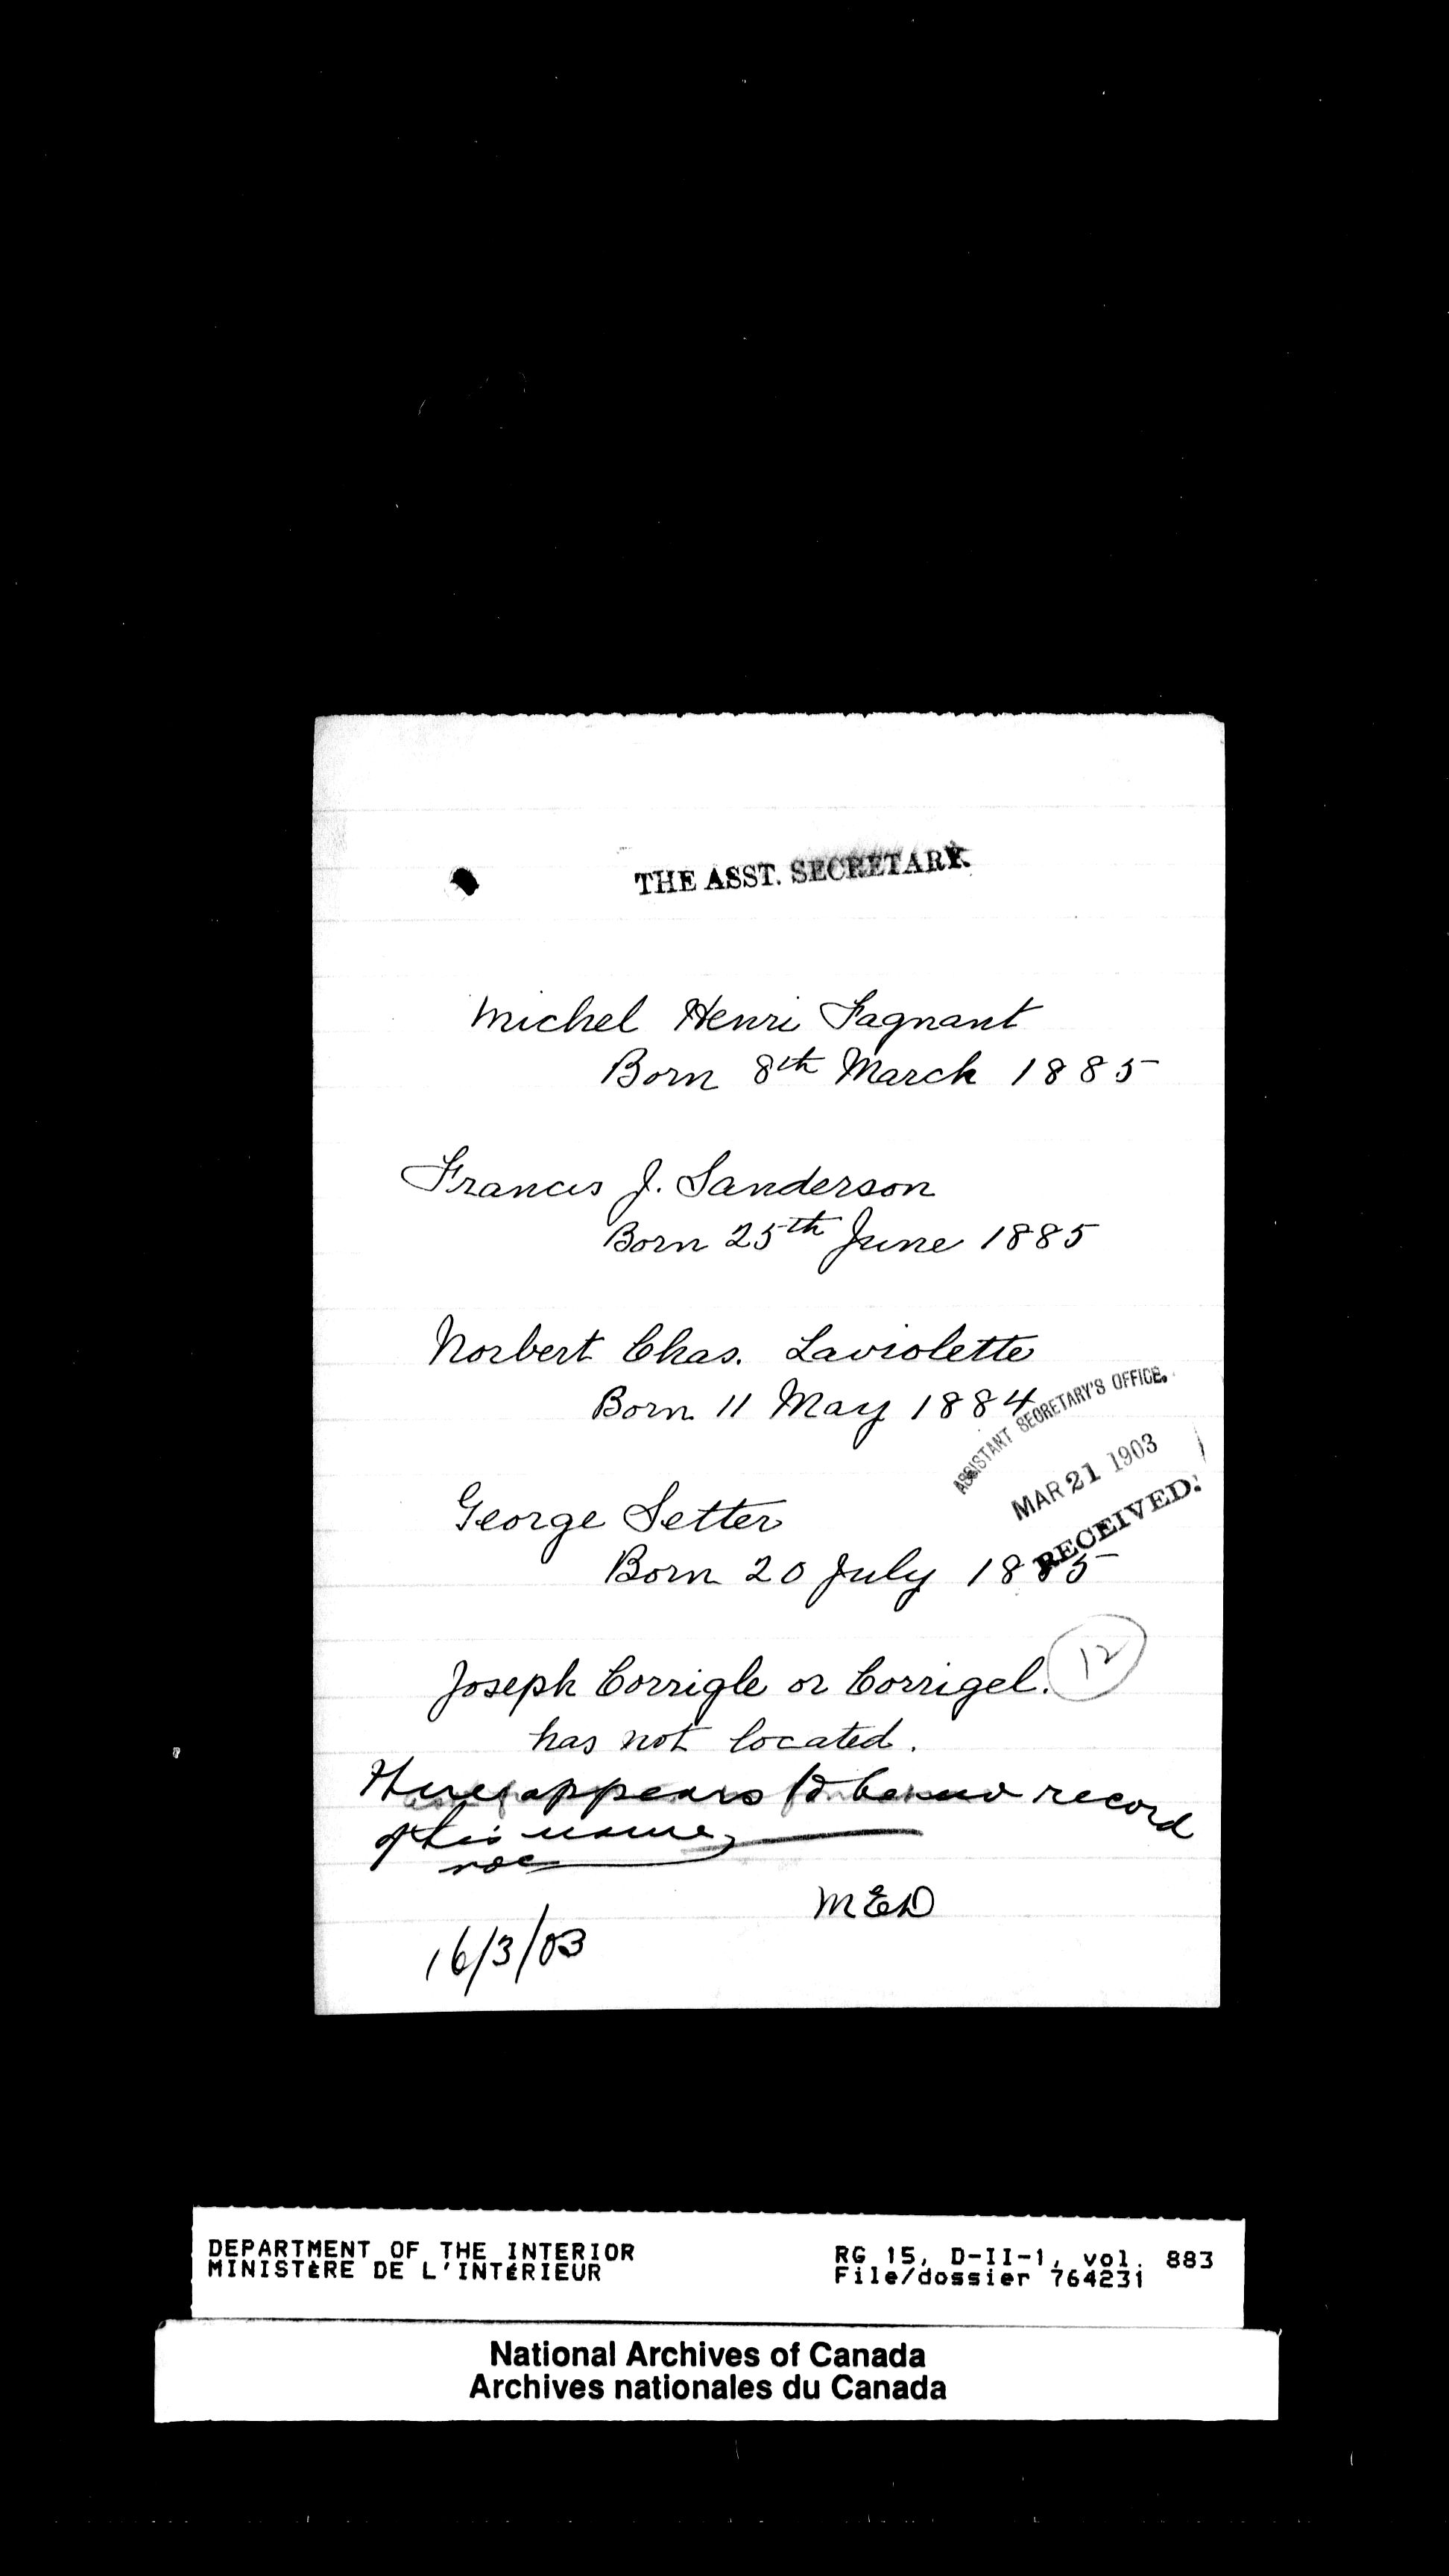 THE ASST. SECRETARY.
Michel Henri Fagnant
Born 8th March 1885
Francis J. Sanderson
Born 25th June 1885
Norbert Chas. Laviolette
Born 11 May 1884
ASSISTANT SECRETARY'S OFFICE.
MAR 21 1903
RECEIVED.
George Setter
Born 20 July 1885
Joseph Corrigle or Corrigel.
12
has not located.
There appears to be no record
of his name
MED
16/3/03
DEPARTMENT OF THE INTERIOR
MINISTÈRE DE L'INTÉRIEUR
RG 15, D-II-1, vol. 883
File/dossier 764231
National Archives of Canada
Archives nationales du Canada